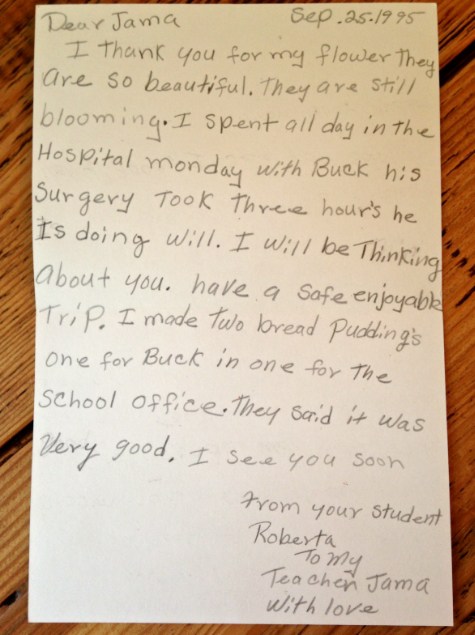 Dear Jama Sep.25.1995
I thank you for my flower They
are so beautiful. They are still
blooming. I spent all day in the
Hospital monday with Buck his
Surgery Took three hour's he
Is doing will. I will be Thinking
About you. have a safe enjoyable
Trip. I made Two bread Pudding's
one for Buck in one for the
School office. They said it was
Very good. I see you soon
From your student
Roberta
To my
Teacher Jama
With love